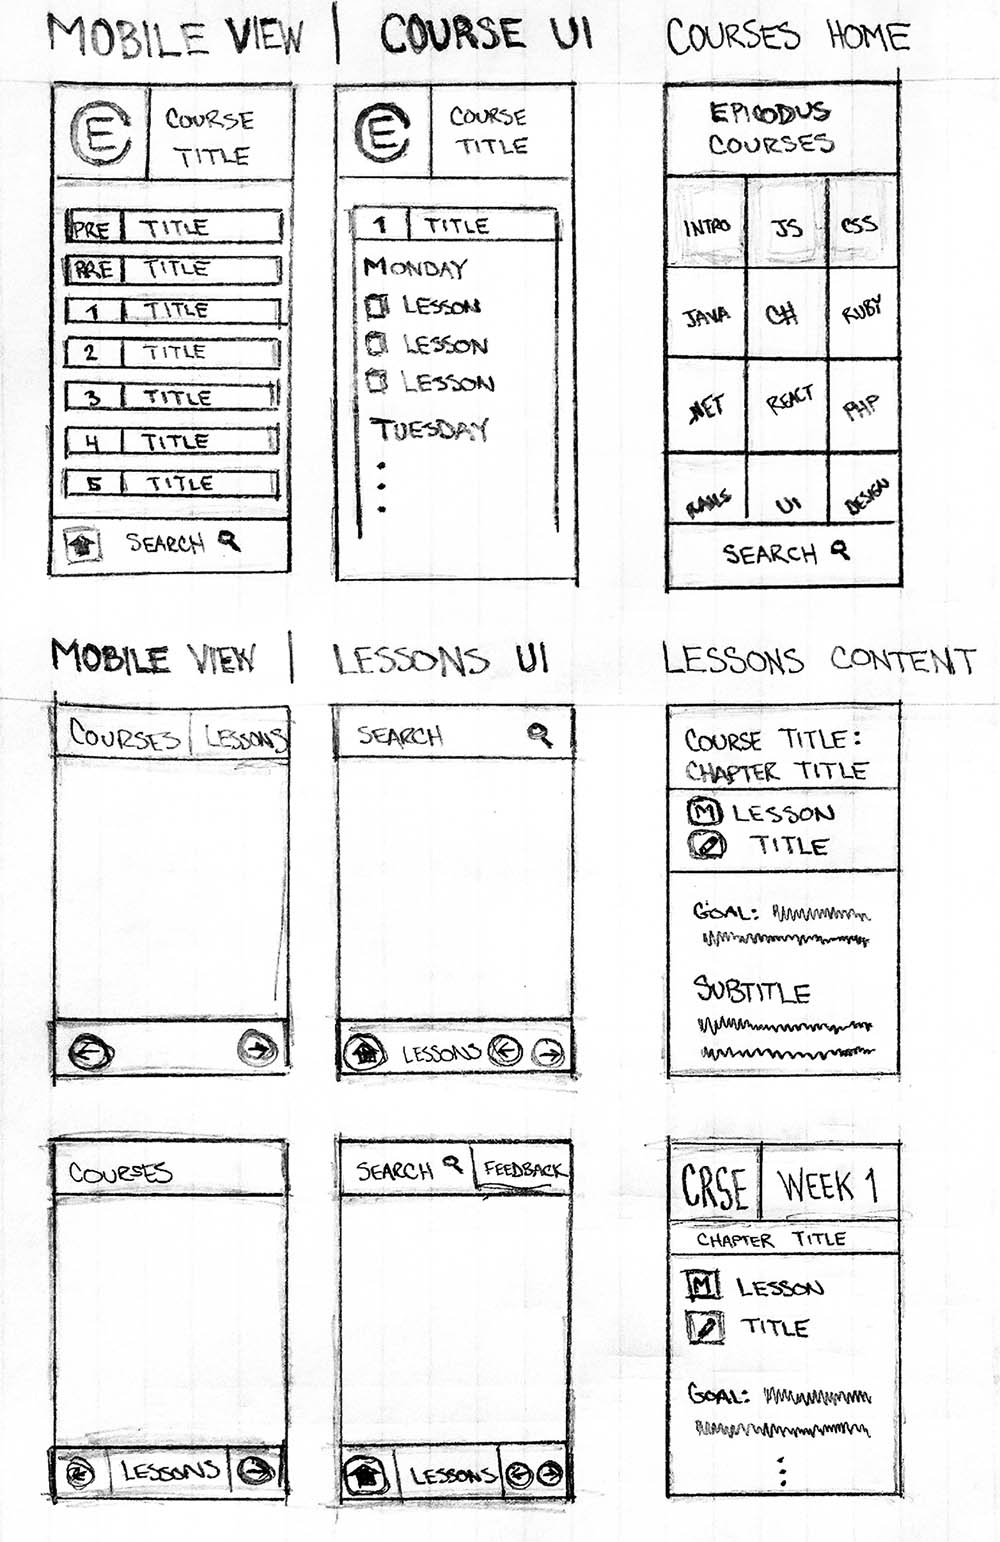 MOBILE VIEW | COURSE UI
COURSES HOME
E
COURSE
TITLE
PRE TITLE
PRE TITLE
1 TITLE
2 TITLE
3 TITLE
4 TITLE
5 TITLE
SEARCH
E
COURSE
TITLE
1 TITLE
MONDAY
LESSON
LESSON
LESSON
TUESDAY
EPICODUS
COURSES
INTRO JS CSS
JAVA C# RUBY
.NET REACT PHP
RAILS UI DESIGN
SEARCH
MOBILE VIEW | LESSONS UI
LESSONS CONTENT
COURSES LESSONS
SEARCH
LESSONS
COURSE TITLE:
CHAPTER TITLE
M LESSON
TITLE
GOAL:
SUBTITLE
COURSES
LESSONS
SEARCH FEEDBACK
LESSONS
CRSE WEEK 1
CHAPTER TITLE
M LESSON
TITLE
GOAL: